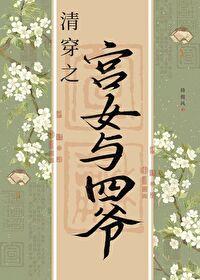 清穿之
宫女与四爷